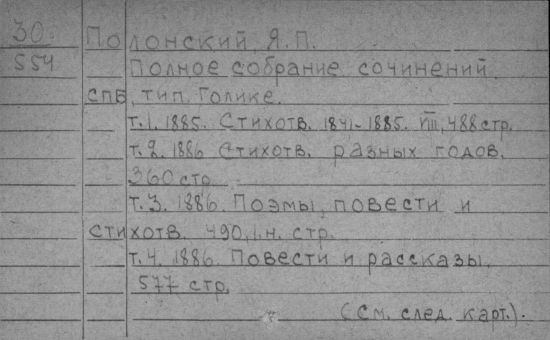 30. Полонский, Я.П.
554 Полное собрание сочинений.
СПБ, тип. Голике.
т.1. 1885. Стихотв. 1841-1885. VIII, 488 стр.
т.2. 1886 Стихотв. разных годов.
360 стр.
т.3. 1886. Поэмы, повести и
стихотв. 490, 1 н. стр.
т.4. 1886. Повести и рассказы.
577 стр.
(См. след. карт.).